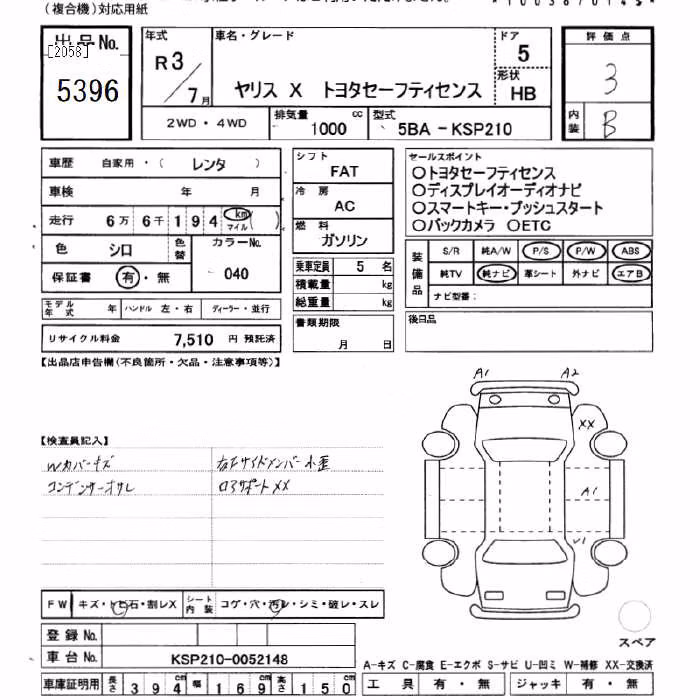 (複合機)対応用紙
*10038/0145*
出品No.
[2058]
5396
年式
R3/7月
車名・グレード
ヤリス X トヨタセーフティセンス
ドア
5
形状
HB
2WD・4WD
排気量
1000 cc
型式
5BA-KSP210
評価点
3
内装
B
車歴 自家用・( レンタ )
車検 年 月
走行 6万 6千 1 9 4 km マイル ( )
色 シロ 色替
カラーNo.
040
保証書 有・無
モデル年式 年 ハンドル 左・右 ディーラー・並行
リサイクル料金 7,510 円 預託済
シフト
FAT
冷房
AC
燃料
ガソリン
乗車定員 5 名
積載量 kg
総重量 kg
書類期限
月 日
セールスポイント
○トヨタセーフティセンス
○ディスプレイオーディオナビ
○スマートキー・プッシュスタート
○バックカメラ ○ETC
装備品
S/R 純A/W P/S P/W ABS
純TV 純ナビ 革シート 外ナビ エアB
ナビ型番:
後日品
【出品店申告欄(不良箇所・欠品・注意事項等)】
A1 A2
XX
A1
【検査員記入】
Wカバーキズ
コンデンサーオサレ
右Fサイドメンバー小歪
ロアサポートXX
FW キズ・トビ石・割レX
シート内装 コゲ・穴・汚レ・シミ・破レ・スレ
登録No.
車台No. KSP210-0052148
車庫証明用 長さ 394cm 幅 169cm 高さ 150cm
スペア
A-キズ C-腐食 E-エクボ S-サビ U-凹ミ W-補修 XX-交換済
工具 有・無 ジャッキ 有・無